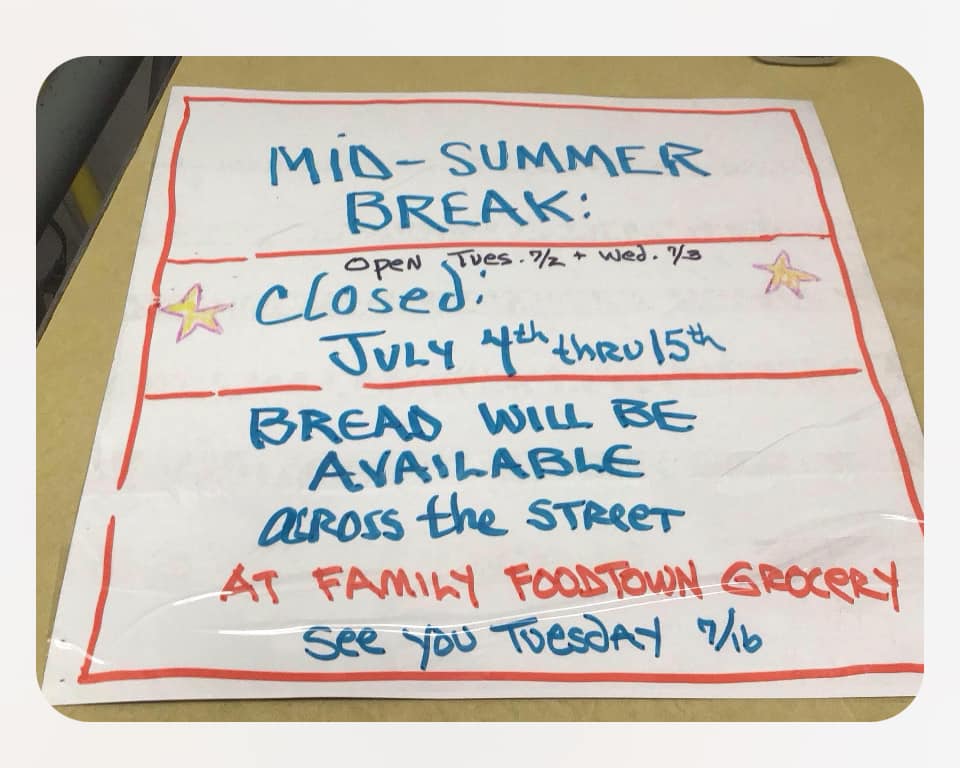 MID-SUMMER
BREAK:
OPEN Tues. 7/2 + Wed. 7/3
Closed:
JULY 4th thru 15th
BREAD WILL BE
AVAILABLE
ACROSS the STReeT
AT FAMILY FOODTOWN GROCeRY
See you TuesdAY 7/16